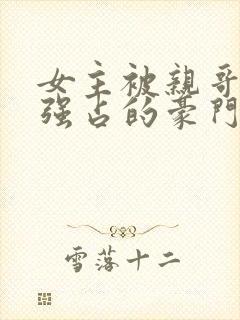 女主被親哥
強占的豪門
雪落十二